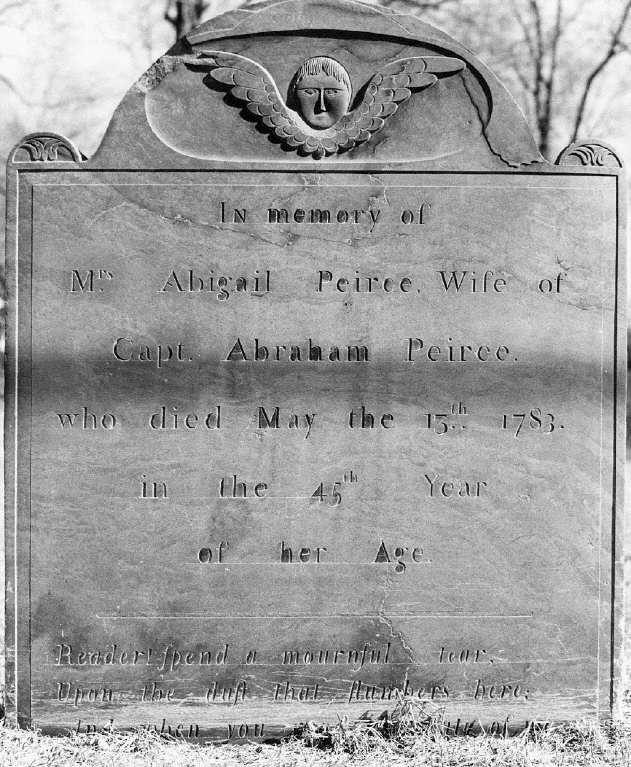 In memory of
Mrs. Abigail Peirce, Wife of
Capt. Abraham Peirce.
who died May the 13th. 1783.
in the 45th Year
of her Age.
Reader! ſpend a mournful tear,
Upon the duſt that ſlumbers here;
And when you